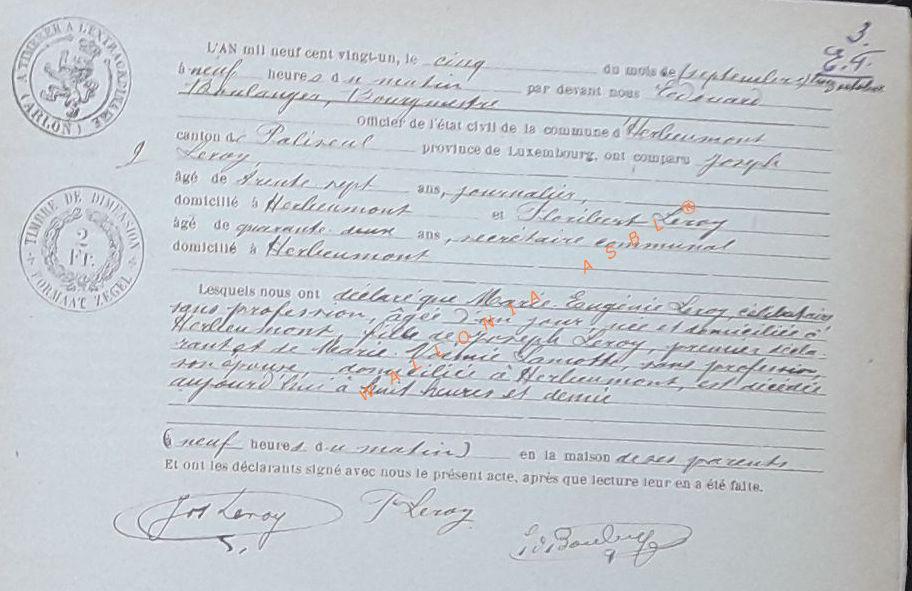 3.
E.L.
L'AN mil neuf cent vingt-un, le cinq du mois de (septembre)
à neuf heures du matin par devant nous Edouard
Boulanger, Bourgmestre
Officier de l'état civil de la commune d'Herbeumont
canton de Paliseul province de Luxembourg, ont comparu Joseph
Leroy,
âgé de trente sept ans, journalier,
domicilié à Herbeumont et Floribert Leroy
âgé de quarante deux ans, secrétaire communal
domicilié à Herbeumont
Lesquels nous ont déclaré que Marie Eugénie Leroy célibataire
sans profession, âgée d'un jour, née et domiciliée à
Herbeumont, fille de Joseph Leroy, premier décla-
rant et de Marie Lamotte, sans profession,
son épouse, domiciliée à Herbeumont, est décédée
aujourd'hui à huit heures et demie
(à neuf heures du matin) en la maison de ses parents
Et ont les déclarants signé avec nous le présent acte, après que lecture leur en a été faite.
Jos Leroy
F Leroy
Ed Boulanger
A TIMBRER A L'EXTRAORDINAIRE
(ARLON)
9
TIMBRE DE DIMENSION
2
FR.
FORMAAT ZEGEL
WALLONIA ASBL ®